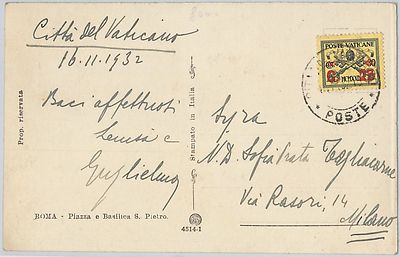 Città del Vaticano
16.11.1932
POSTE VATICANE
POSTE
Baci affettuosi
Luisa e
Guglielmo
Prop. riservata
Stampato in Italia
N.D. Sofia Prata Tagliacarne
Via Rasori, 14
Milano
ROMA - Piazza e Basilica S. Pietro.
4514-1